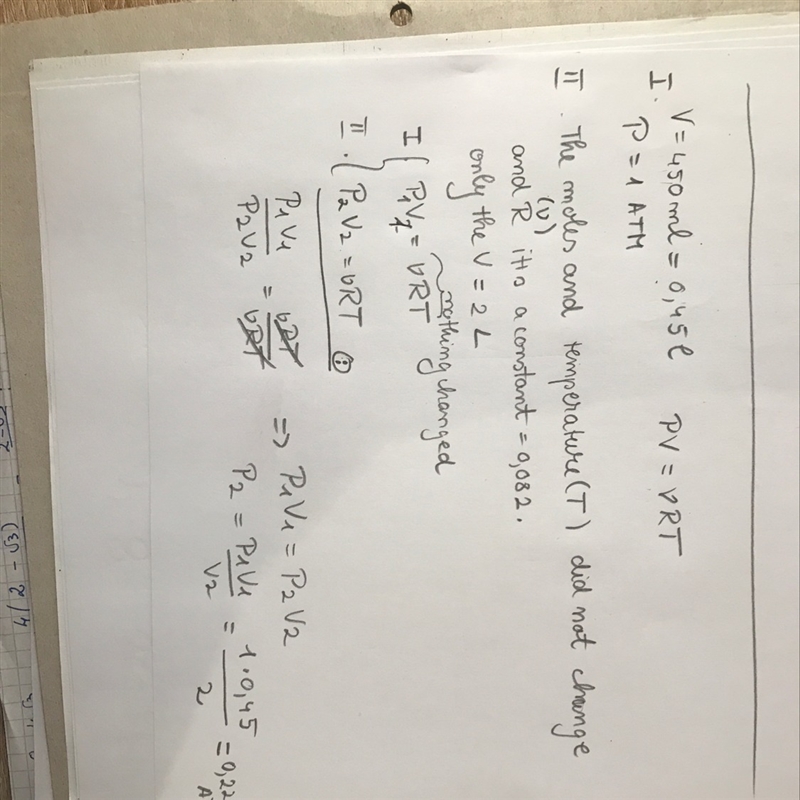 I. V = 450 ml = 0,45 l PV = νRT
P = 1 ATM
II. The moles and temperature (T) did not change
(ν)
and R it is a constant = 0,082.
only the V = 2 L
I { P1V1 = νRT
nothing changed
II. { P2V2 = νRT :
P1V1 / P2V2 = νRT / νRT => P1V1 = P2V2
P2 = P1V1 / V2 = 1·0,45 / 2 = 0,22
4(2 - √3)